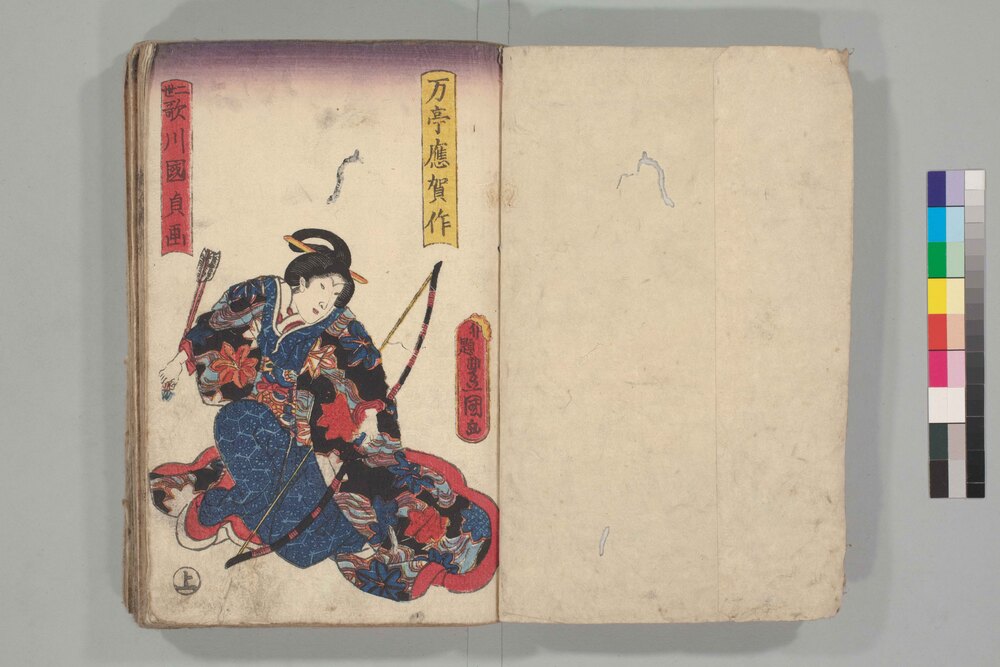 万亭應賀作
外題豊国画
二世歌川國貞画
上